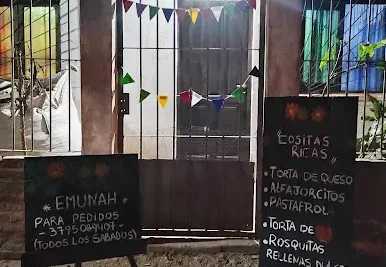 "EMUNAH"
PARA PEDIDOS
-3795089407-
(TODOS LOS SABADOS)
"COSITAS
RICAS"
• TORTA DE QUESO
• ALFAJORCITOS
• PASTAFROLA
• TORTA DE
• ROSQUITAS
RELLENAS